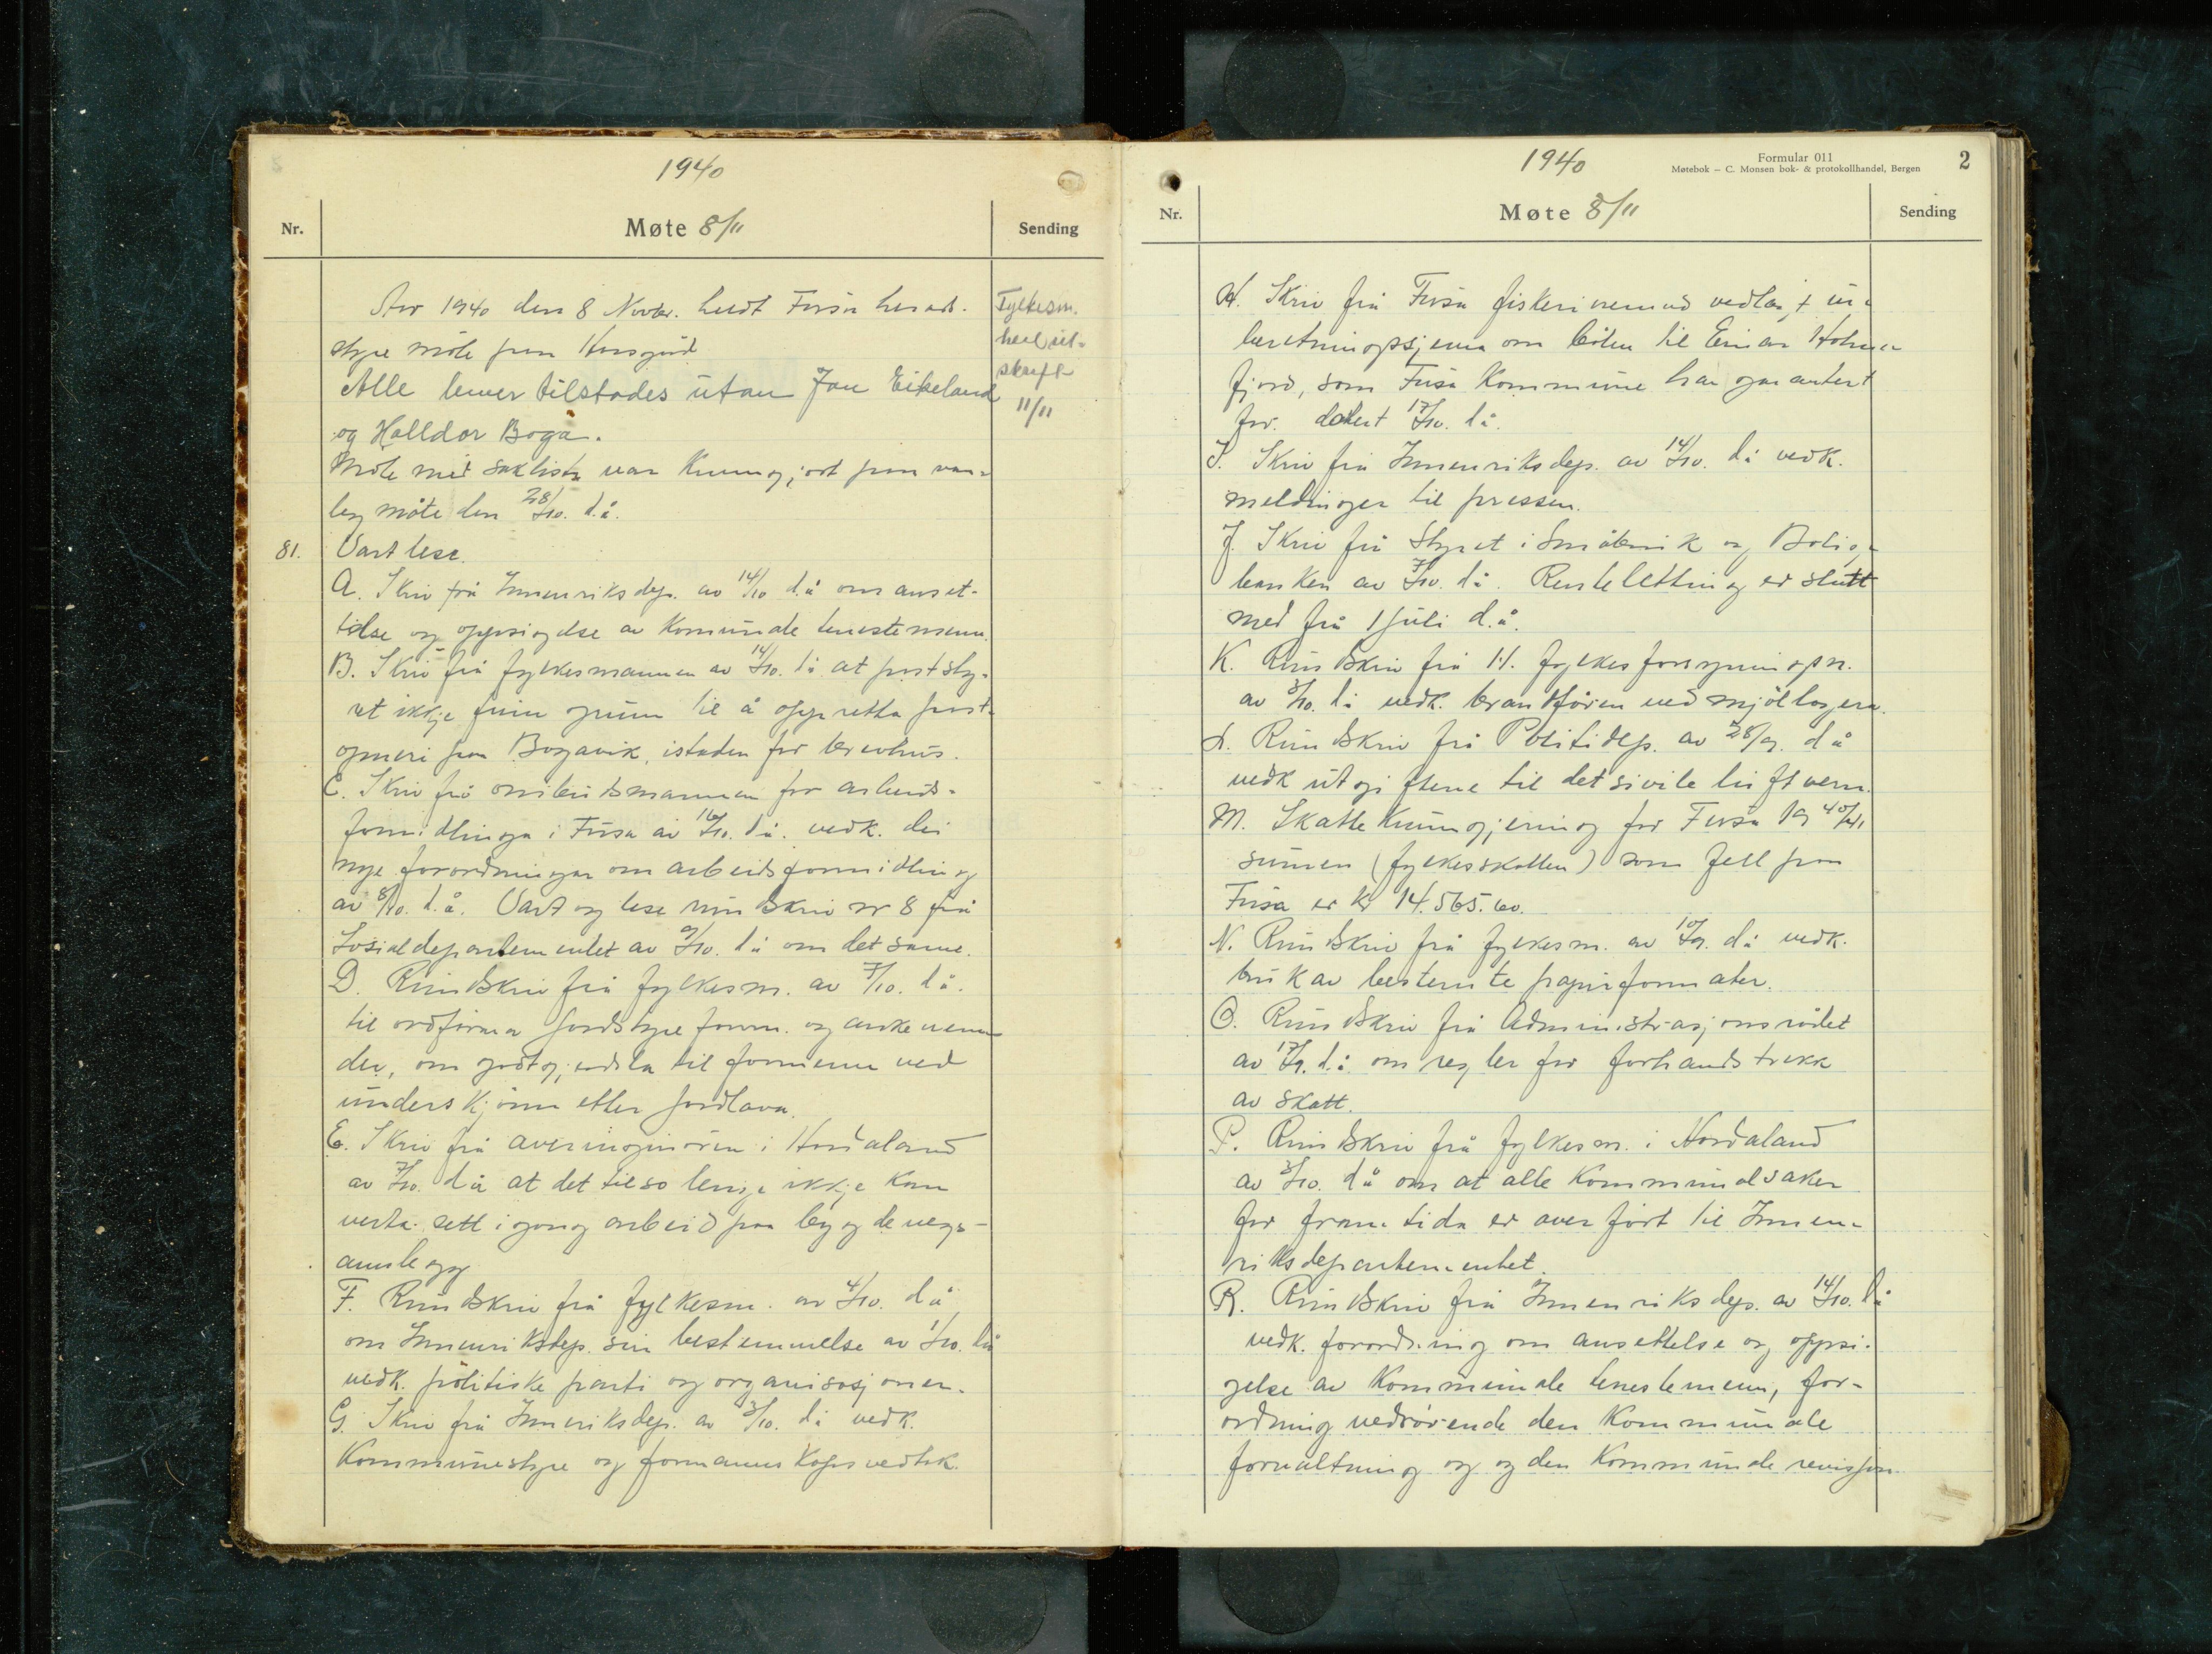 1940
Nr.
Møte 8/11
Sending
Aar 1940 den 8 Novbr. heldt Fusa herad-
styre møte paa Havsgård
Alle lemer tilstades utan Jon Eikeland
og Halldor Boga.
Møte med sakliste var kunngjort paa van-
leg måte den 28/10. d.å.
Fylkesm.
heil ut-
skrift
11/11
81.
Vart lese.
A. Skriv frå Innenriksdep. av 14/10 d.å om anset-
telse og oppsigelse av komunale tenestemenn.
B. Skriv frå fylkesmannen av 14/10. d.å at poststy-
ret ikkje finn grunn til å oppretta post-
opneri paa Bogavik, istaden for brevhus.
C. Skriv frå ombudsmannen for arbeids-
formidlinga i Fusa av 16/10. d.å. vedk. dei
nye forordningar om arbeidsformidling
av 8/10. d.å. Vart og lese rundskriv nr 8 frå
Sosialdepartementet av 9/10. d.å om det same.
D. Rundskriv frå fylkesm. av 7/10. d.å.
til ordførar jordstyre form. og ankenemn
der, om godtgjerdsla til formenn ved
underskjønn etter jordlova.
E. Skriv frå overingeniøren i Hordaland
av 7/10. d.å at det til so lenge ikkje kan
verta sett i gong arbeid paa bygdevegs-
anlegg
F. Rundskriv frå fylkesm. av 4/10. d.å
om Innenriksdep. sin bestemmelse av 1/10. d.å
vedk. politiske parti og organisasjoner.
G. Skriv frå Inneriksdep. av 3/10. d.å vedk.
Kommunestyre og formannskapsvedtak.
1940
Formular 011
Møtebok – C. Monsen bok- & protokollhandel, Bergen
2
Nr.
Møte 8/11
Sending
H. Skriv frå Fusa fiskerinemnd vedlagt inn-
beretningsskjema om båten til Einar Holme-
fjord, som Fusa Kommune har garantert
for. datert 17/10. d.å.
I. Skriv frå Innenriksdep. av 14/10. d.å vedk.
meldinger til pressen.
J. Skriv frå Styret i Småbruk og Bolig-
banken av 7/10. d.å. Rentelettning er slutt
med frå 1 juli d.å.
K. Rundskriv frå H. fylkesforsyningsn.
av 3/10. d.å vedk. brandfåren ved mjöllagera.
L. Rundskriv frå Politidep. av 28/9. d å
vedk utgiftene til det sivile luftvern.
M. Skattekunngjering for Fusa 1940/41
sumen (fylkesskatten) som fell paa
Fusa er kr 14.565.60.
N. Rundskriv frå fylkesm. av 10/9. d.å vedk.
bruk av bestemte papirformater.
O. Rundskriv frå Administrasjonsrådet
av 17/9. d.å. om regler for forhandstrekk
av skatt.
P. Rundskriv frå fylkesm. i Hordaland
av 3/10. d å om at alle kommunalsaker
for framtida er overført til Innen-
riksdepartementet.
R. Rundskriv frå Innenriksdep. av 14/10. d å
vedk. forordning om ansettelse og oppsi-
gelse av Kommunale tenestemenn, for-
ordning vedrørende den Kommunale
forvaltning og og den Kommunale revisjon